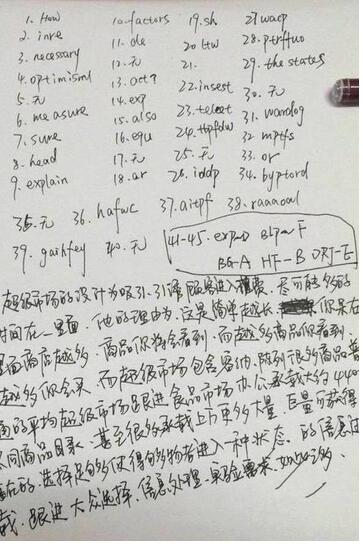 1. How
2. inre
3. necessary
4. optimisml
5. 无
6. me asure
7. sure
8. head
9. explain
10. factors
11. de
12. 无
13. act?
14. exp
15. also
16. equ
17. 无
18. ar
19. sh
20. ltw
21.
22. insest
23. teleet
24. ttpfdw
25. 无
26. iddp
27. wacp
28. ptrftuo
29. the states
30. 无
31. wandog
32. mptfs
33. or
34. byptord
35. 无 36. hafwc 37. aitpf 38. raaaoal
39. gaihfey 40. 无
41-45. exp-D BLP-F
BG-A HF-B ORJ-E
超级市场的设计为吸引、引诱顾客进入 尽可能多的
时间在里面. 他的理由为, 这是简单越长 你呆在
里面商店越多. 商品你将会看到. 而越多商品你看到.
越多你会买. 而超级市场包含着纳. 陈列很多商品普
通的平均超级市场跟进食品市场办公承载大约 440
不同商品目录. 甚至很多承载上万更多大量. 巨量可获得
潜在的. 选择足够多使得购物者进入一种状态. 的信息过
载. 跟进大众选择. 信息处理. 实验要求.